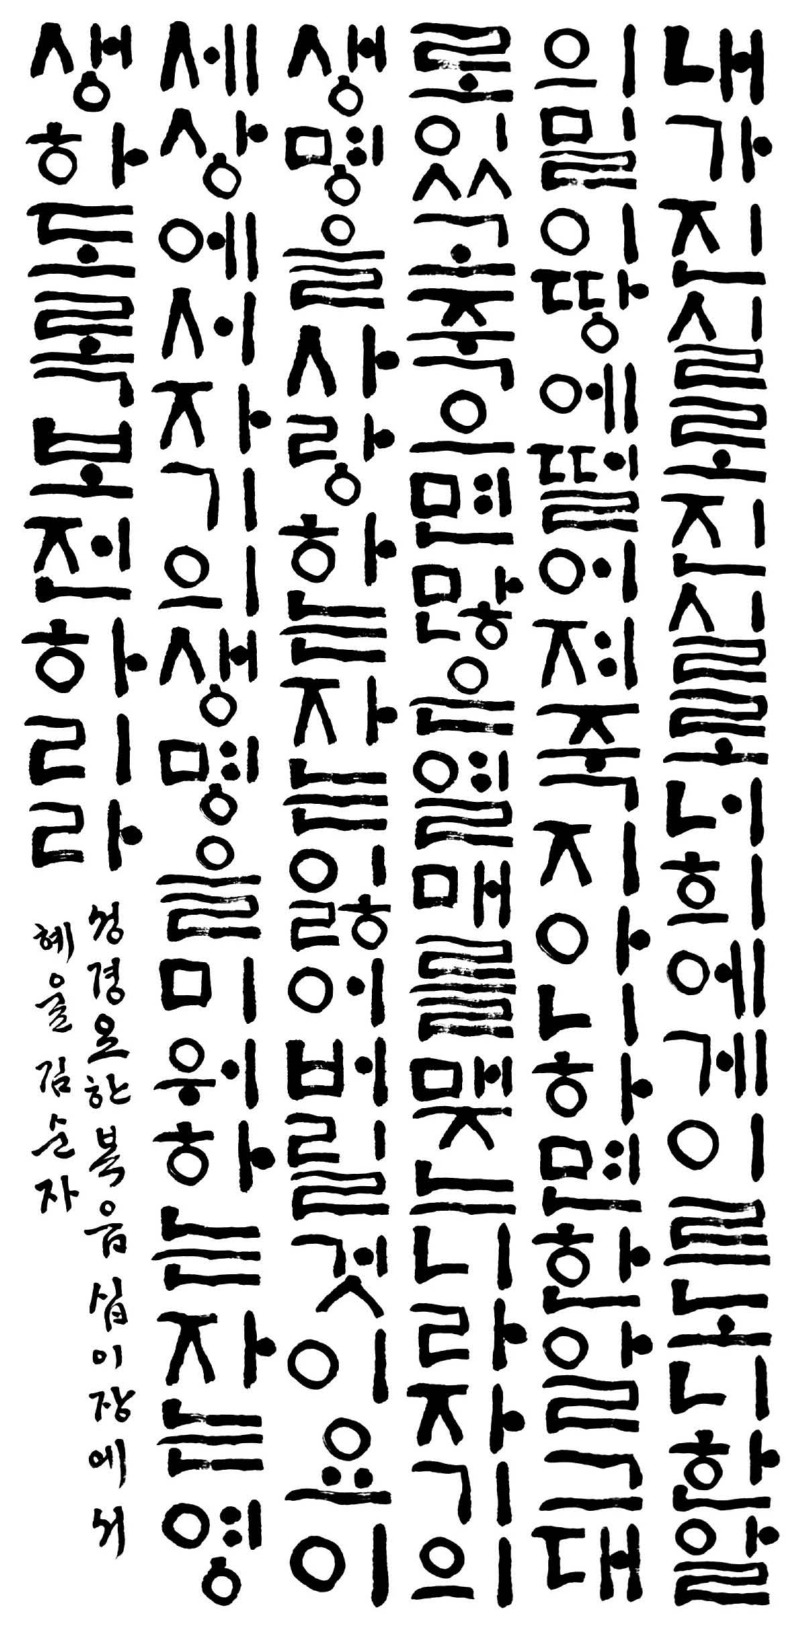 내가진실로진실로너희에게이르노니한알
의밀이땅에떨어져죽지아니하면한알그대
로있고죽으면많은열매를맺느니라자기의
생명을사랑하는자는잃어버릴것이요이
세상에서자기의생명을미워하는자는영
생하도록보전하리라
성경요한복음십이장에서
혜율김순자